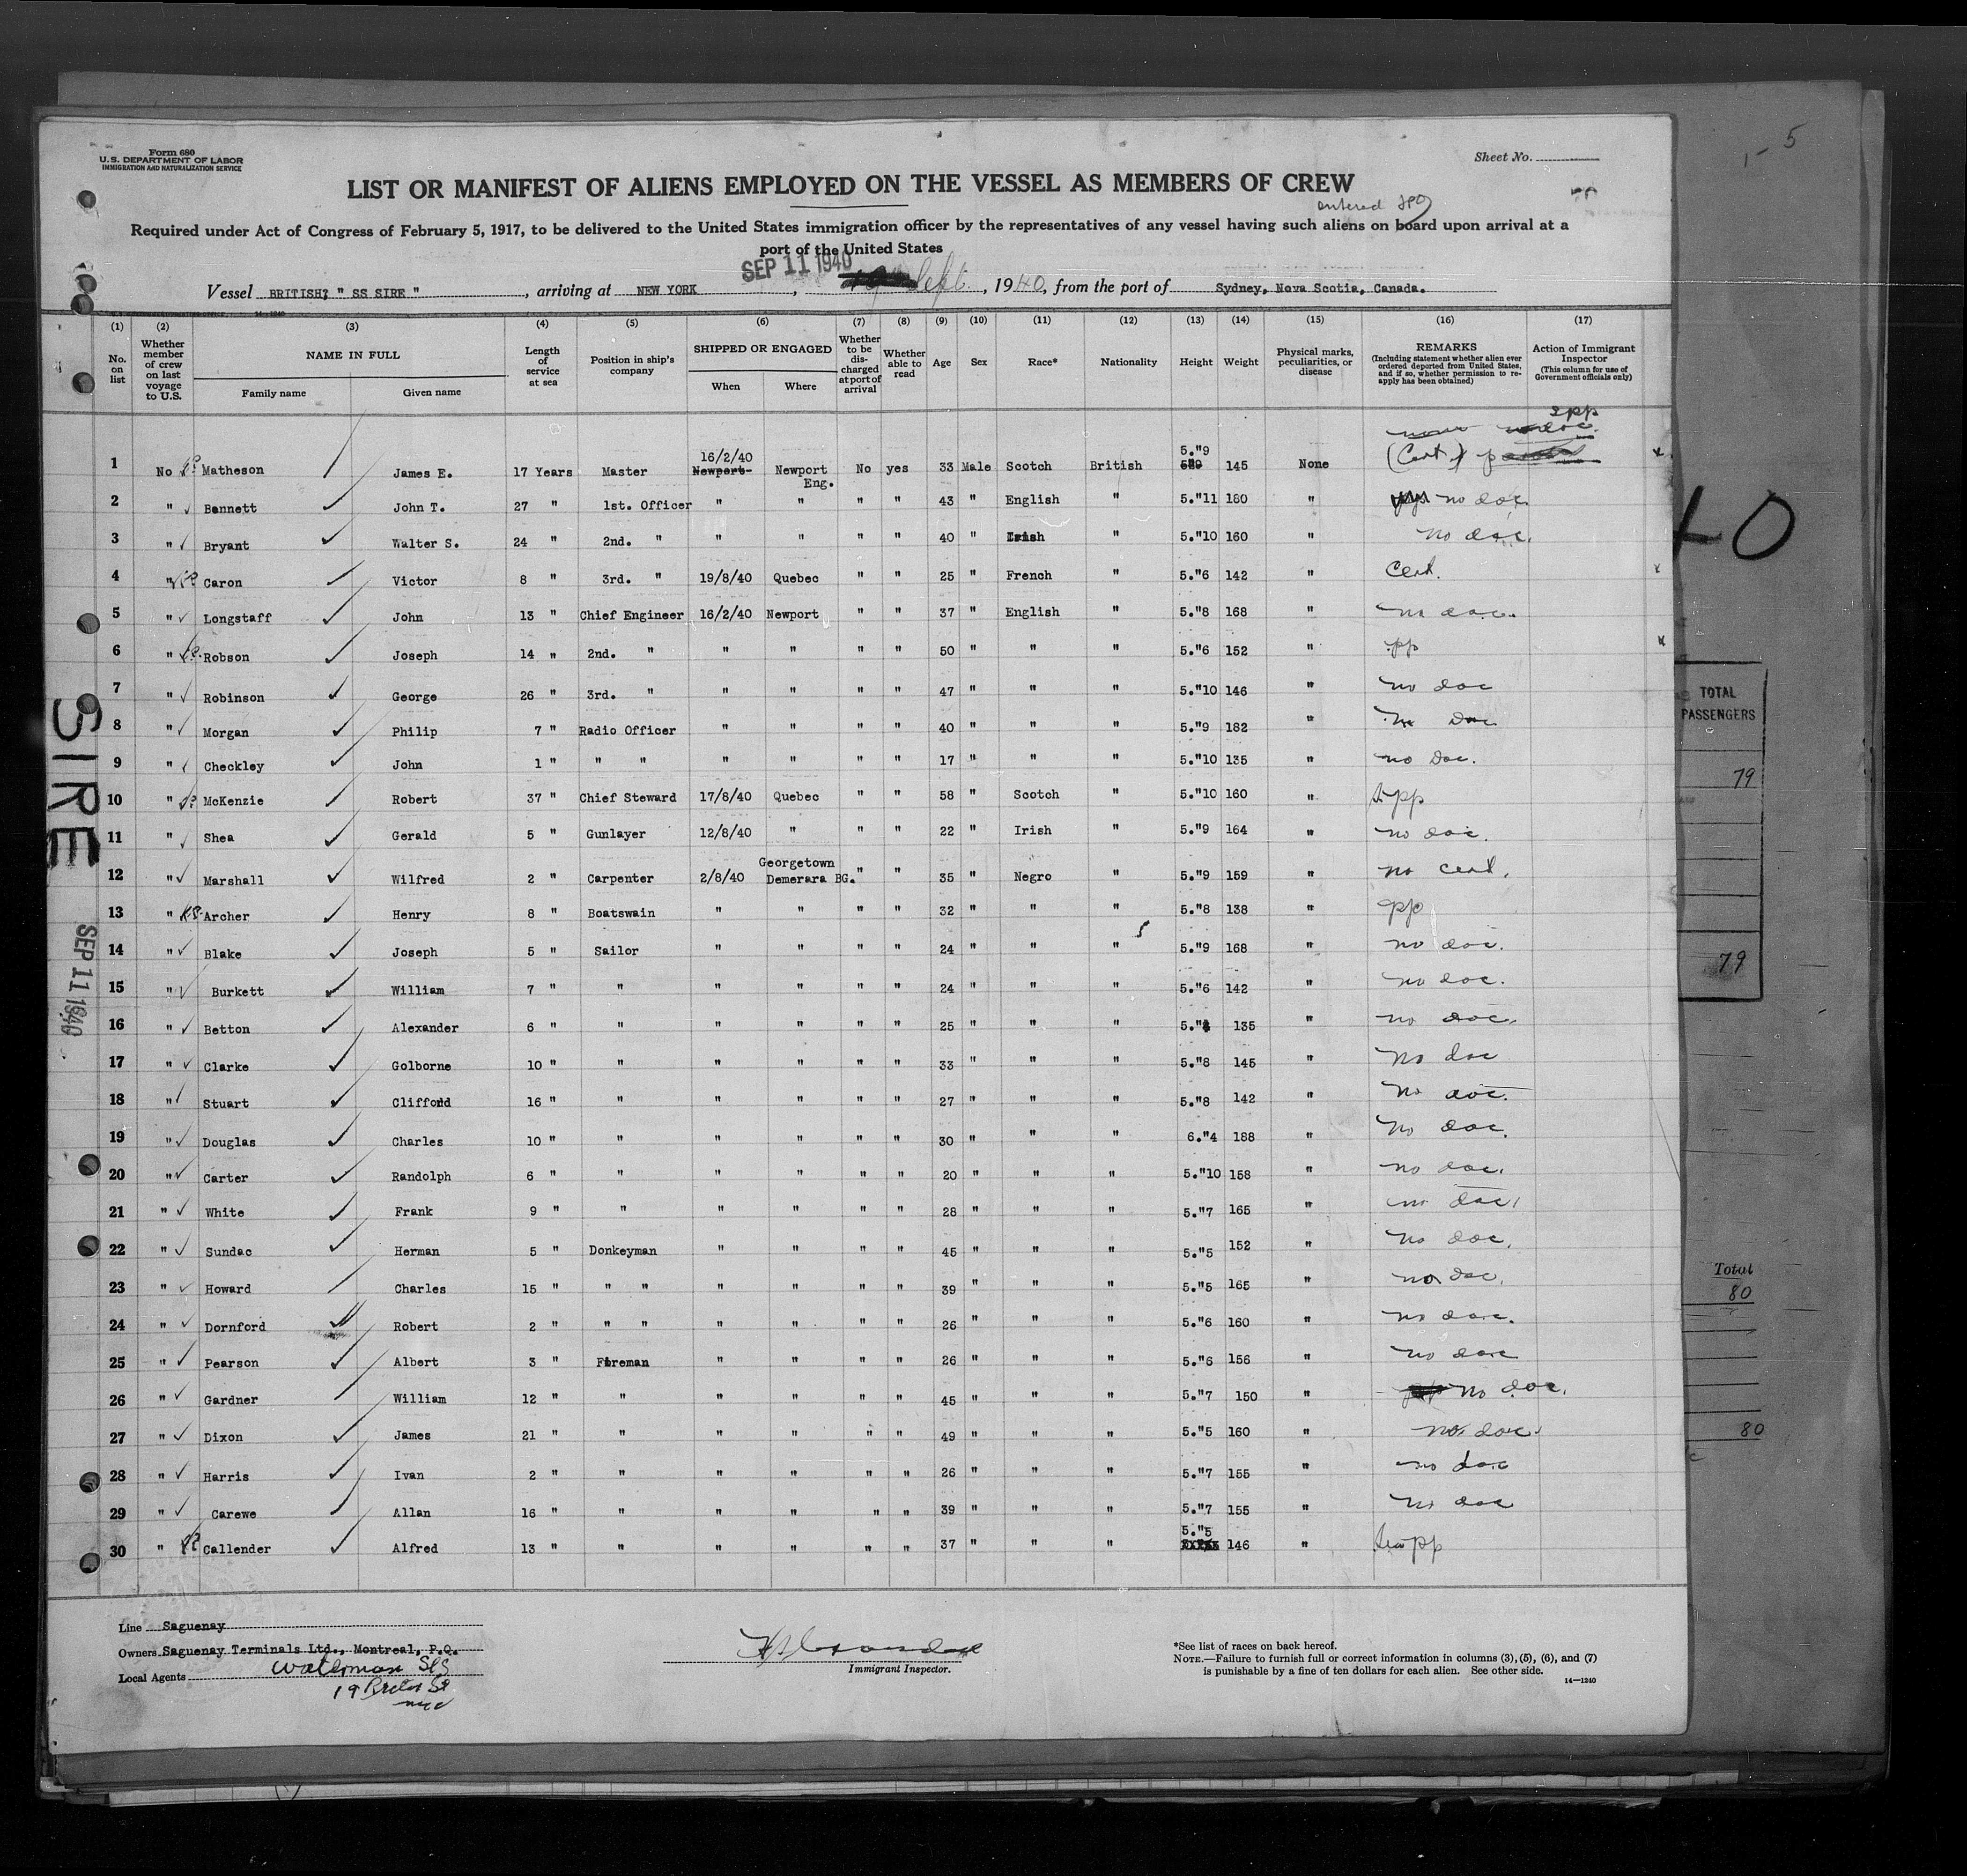 Form 680
U.S. DEPARTMENT OF LABOR
IMMIGRATION AND NATURALIZATION SERVICE
Sheet No.
5
LIST OR MANIFEST OF ALIENS EMPLOYED ON THE VESSEL AS MEMBERS OF CREW
entered
Required under Act of Congress of February 5, 1917, to be delivered to the United States immigration officer by the representatives of any vessel having such aliens on board upon arrival at a
port of the United States
SEP 11 1940
Vessel BRITISH; " SS SIRE ", arriving at NEW YORK, Sept. , 1940, from the port of Sydney, Nova Scotia, Canada.
(1) (2) (3) (4) (5) (6) (7) (8) (9) (10) (11) (12) (13) (14) (15) (16) (17)
No. on list
Whether member of crew on last voyage to U.S.
NAME IN FULL
Family name
Given name
Length of service at sea
Position in ship's company
SHIPPED OR ENGAGED
When
Where
Whether to be discharged at port of arrival
Whether able to read
Age
Sex
Race*
Nationality
Height
Weight
Physical marks, peculiarities, or disease
REMARKS
(Including statement whether alien ever ordered deported from United States, and if so, whether permission to reapply has been obtained)
Action of Immigrant Inspector
(This column for use of Government officials only)
1 No Matheson James E. 17 Years Master 16/2/40 Newport- Newport Eng. No yes 33 Male Scotch British 5."9 145 None (Cert)
2 " Bannett John T. 27 " 1st. Officer " " " " 43 " English " 5."11 180 " no doc.
3 " Bryant Walter S. 24 " 2nd. " " " " " 40 " Irish " 5."10 160 " no doc.
4 " Caron Victor 8 " 3rd. " 19/8/40 Quebec " " 25 " French " 5."6 142 " Cert.
5 " Longstaff John 13 " Chief Engineer 16/2/40 Newport " " 37 " English " 5."8 168 " no doc.
6 " Robson Joseph 14 " 2nd. " " " " " 50 " " " 5."6 152 " pp
7 " Robinson George 26 " 3rd. " " " " " 47 " " " 5."10 146 " no doc
8 " Morgan Philip 7 " Radio Officer " " " " 40 " " " 5."9 182 " no doc
9 " Checkley John 1 " " " " " " " 17 " " " 5."10 135 " no doc.
10 " McKenzie Robert 37 " Chief Steward 17/8/40 Quebec " " 58 " Scotch " 5."10 160 " pp
11 " Shea Gerald 5 " Gunlayer 12/8/40 " " " 22 " Irish " 5."9 164 " no doc.
12 " Marshall Wilfred 2 " Carpenter 2/8/40 Georgetown Demerara BG. " " 35 " Negro " 5."9 159 " no cert.
13 " Archer Henry 8 " Boatswain " " " " 32 " " " 5."8 138 " pp
14 " Blake Joseph 5 " Sailor " " " " 24 " " " 5."9 168 " no doc.
15 " Burkett William 7 " " " " " " 24 " " " 5."6 142 " no doc.
16 " Betton Alexander 6 " " " " " " 25 " " " 5."4 135 " no doc.
17 " Clarke Golborne 10 " " " " " " 33 " " " 5."8 145 " no doc
18 " Stuart Clifford 16 " " " " " " 27 " " " 5."8 142 " no doc.
19 " Douglas Charles 10 " " " " " " 30 " " " 6."4 188 " no doc.
20 " Carter Randolph 6 " " " " " " 20 " " " 5."10 158 " no doc.
21 " White Frank 9 " " " " " " 28 " " " 5."7 165 " no doc.
22 " Sundac Herman 5 " Donkeyman " " " " 45 " " " 5."5 152 " no doc.
23 " Howard Charles 15 " " " " " " " 39 " " " 5."5 165 " no doc.
24 " Dornford Robert 2 " " " " " " " 26 " " " 5."6 160 " no doc.
25 " Pearson Albert 3 " Fireman " " " " 26 " " " 5."6 156 " no doc
26 " Gardner William 12 " " " " " " 45 " " " 5."7 150 " no doc.
27 " Dixon James 21 " " " " " " 49 " " " 5."5 160 " no doc.
28 " Harris Ivan 2 " " " " " " 26 " " " 5."7 155 " no doc
29 " Carewe Allan 16 " " " " " " 39 " " " 5."7 155 " no doc
30 " Callender Alfred 13 " " " " " " 37 " " " 5."5 146 " pp
SIRE
SEP 11 1940
TOTAL
PASSENGERS
79
79
Total
80
80
Line Saguenay
Owners Saguenay Terminals Ltd., Montreal, P.Q.
Local Agents Waterman SS
19 St
nyc
Immigrant Inspector.
*See list of races on back hereof.
NOTE.—Failure to furnish full or correct information in columns (3), (5), (6), and (7)
is punishable by a fine of ten dollars for each alien. See other side.
14—1240